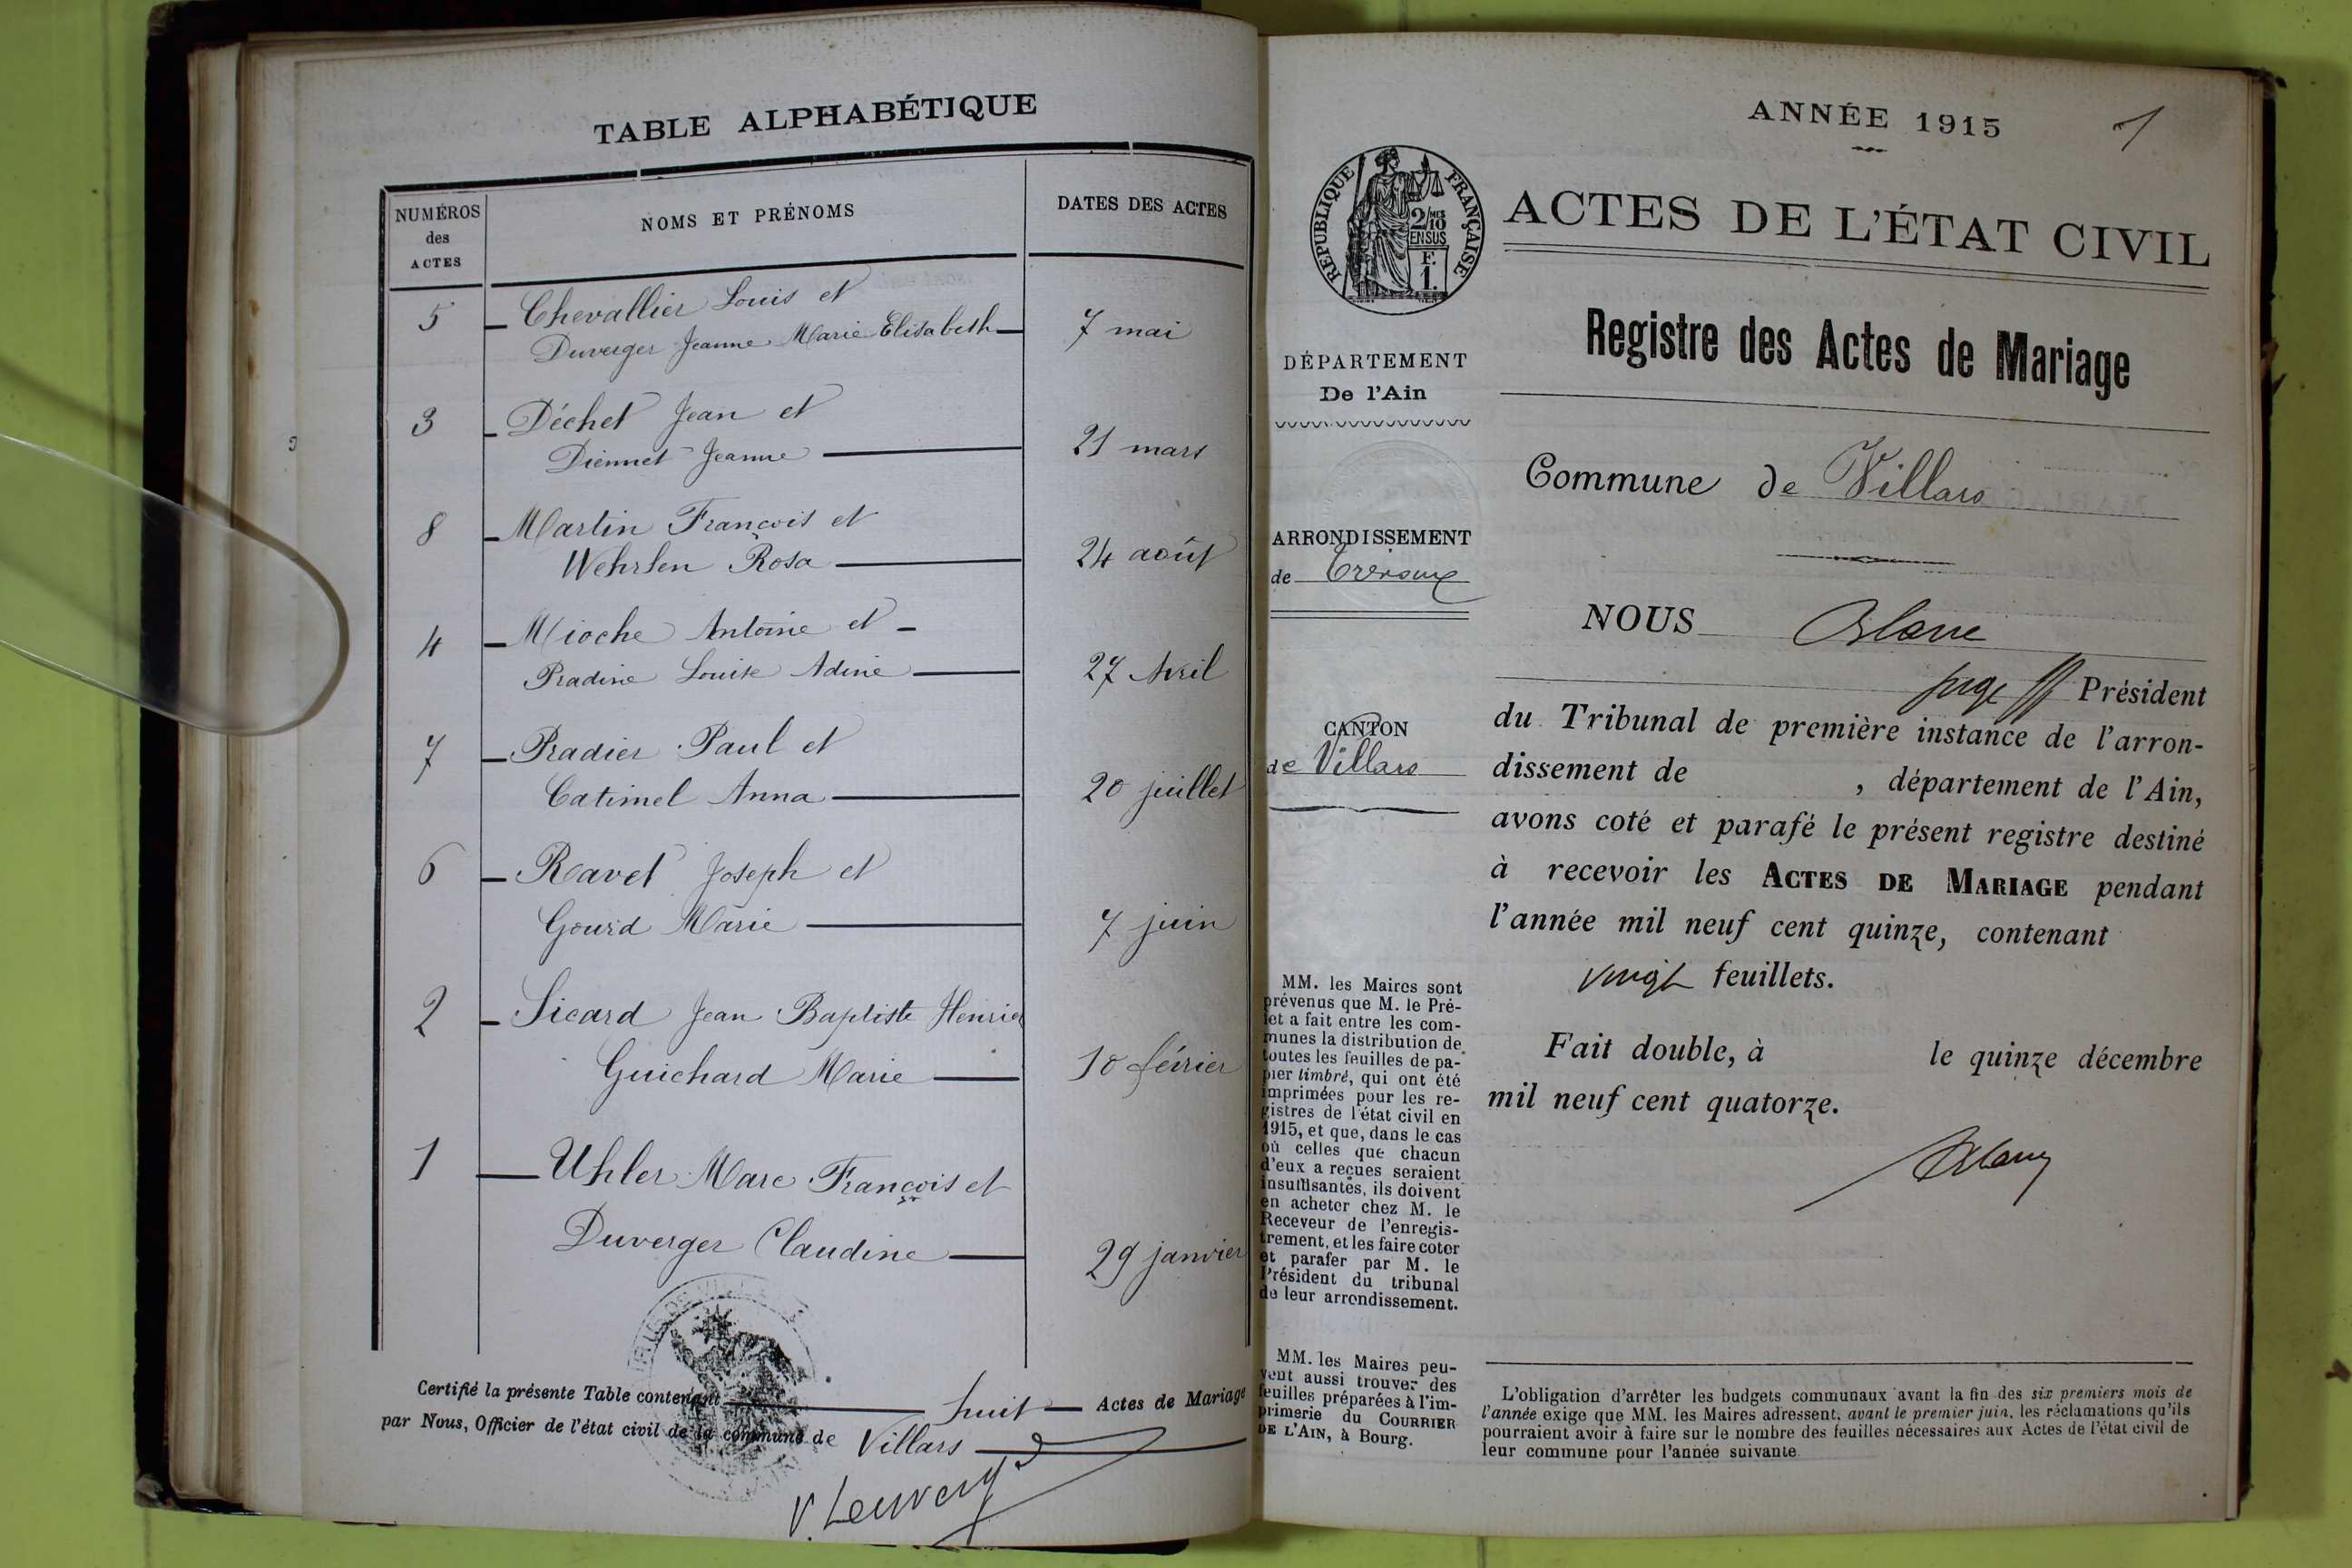 TABLE ALPHABÉTIQUE
NUMÉROS
des
ACTES
NOMS ET PRÉNOMS
DATES DES ACTES
5 Chevallier Louis et
Duverger Jeanne Marie Elisabeth 7 mai
3 Déchet Jean et
Diennet Jeanne 21 mars
8 Martin François et
Wehrlen Rosa 24 août
4 Mioche Antoine et
Pradine Louise Adine 27 Avril
7 Pradier Paul et
Catimel Anna 20 juillet
6 Ravet Joseph et
Gourd Marie 7 juin
2 Sicard Jean Baptiste Henri et
Guichard Marie 10 février
1 Uhler Marc François et
Duverger Claudine 29 janvier
Certifié la présente Table contenant huit Actes de Mariage
par Nous, Officier de l'état civil de la commune de Villars
ANNÉE 1915
1
RÉPUBLIQUE FRANÇAISE
2/10 MES
EN SUS
F.
1.
ACTES DE L'ÉTAT CIVIL
Registre des Actes de Mariage
DÉPARTEMENT
De l'Ain
ARRONDISSEMENT
de Trévoux
CANTON
de Villars
MM. les Maires sont
prévenus que M. le Pré-
fet a fait entre les com-
munes la distribution de
toutes les feuilles de pa-
pier timbré, qui ont été
imprimées pour les re-
gistres de l'état civil en
1915, et que, dans le cas
où celles que chacun
d'eux a reçues seraient
insuffisantes, ils doivent
en acheter chez M. le
Receveur de l'enregis-
trement, et les faire coter
et parafer par M. le
Président du tribunal
de leur arrondissement.
MM. les Maires peu-
vent aussi trouver des
feuilles préparées à l'im-
primerie du COURRIER
DE L'AIN, à Bourg.
Commune de Villars
NOUS Blanc
juge ff Président
du Tribunal de première instance de l'arron-
dissement de , département de l'Ain,
avons coté et parafé le présent registre destiné
à recevoir les ACTES DE MARIAGE pendant
l'année mil neuf cent quinze, contenant
vingt feuillets.
Fait double, à le quinze décembre
mil neuf cent quatorze.
Blanc
L'obligation d'arrêter les budgets communaux avant la fin des six premiers mois de
l'année exige que MM. les Maires adressent, avant le premier juin, les réclamations qu'ils
pourraient avoir à faire sur le nombre des feuilles nécessaires aux Actes de l'état civil de
leur commune pour l'année suivante.